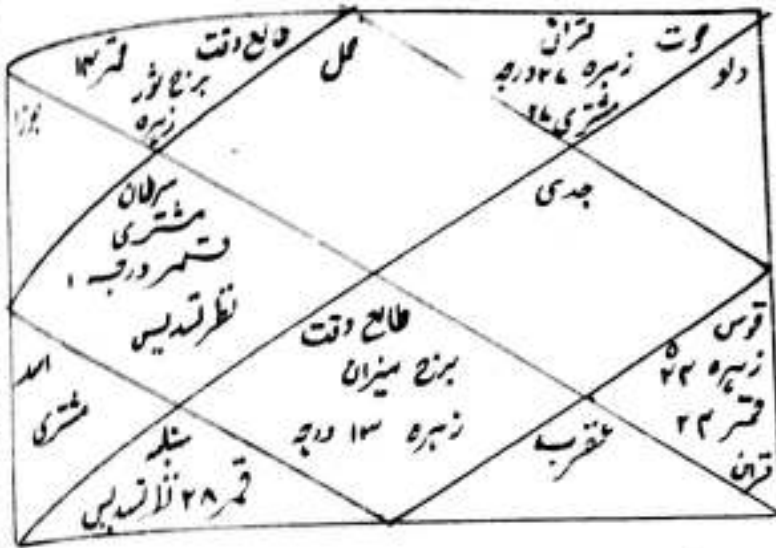 طالع وقت
قمر ۱۳
برج ثور
زہرہ
جوزا
حمل
قران
زہرہ ۲۷ درجہ
مشتری ۲۷
حوت
دلو
سرطان
مشتری
قمر درجہ ۱
نظر تسدیس
جدی
اسد
مشتری
سنبلہ
قمر ۲۸ نظر تسدیس
طالع وقت
برج میزان
زہرہ ۱۳ درجہ
عقرب
قوس
زہرہ ۲۳
قمر ۲۳
قران